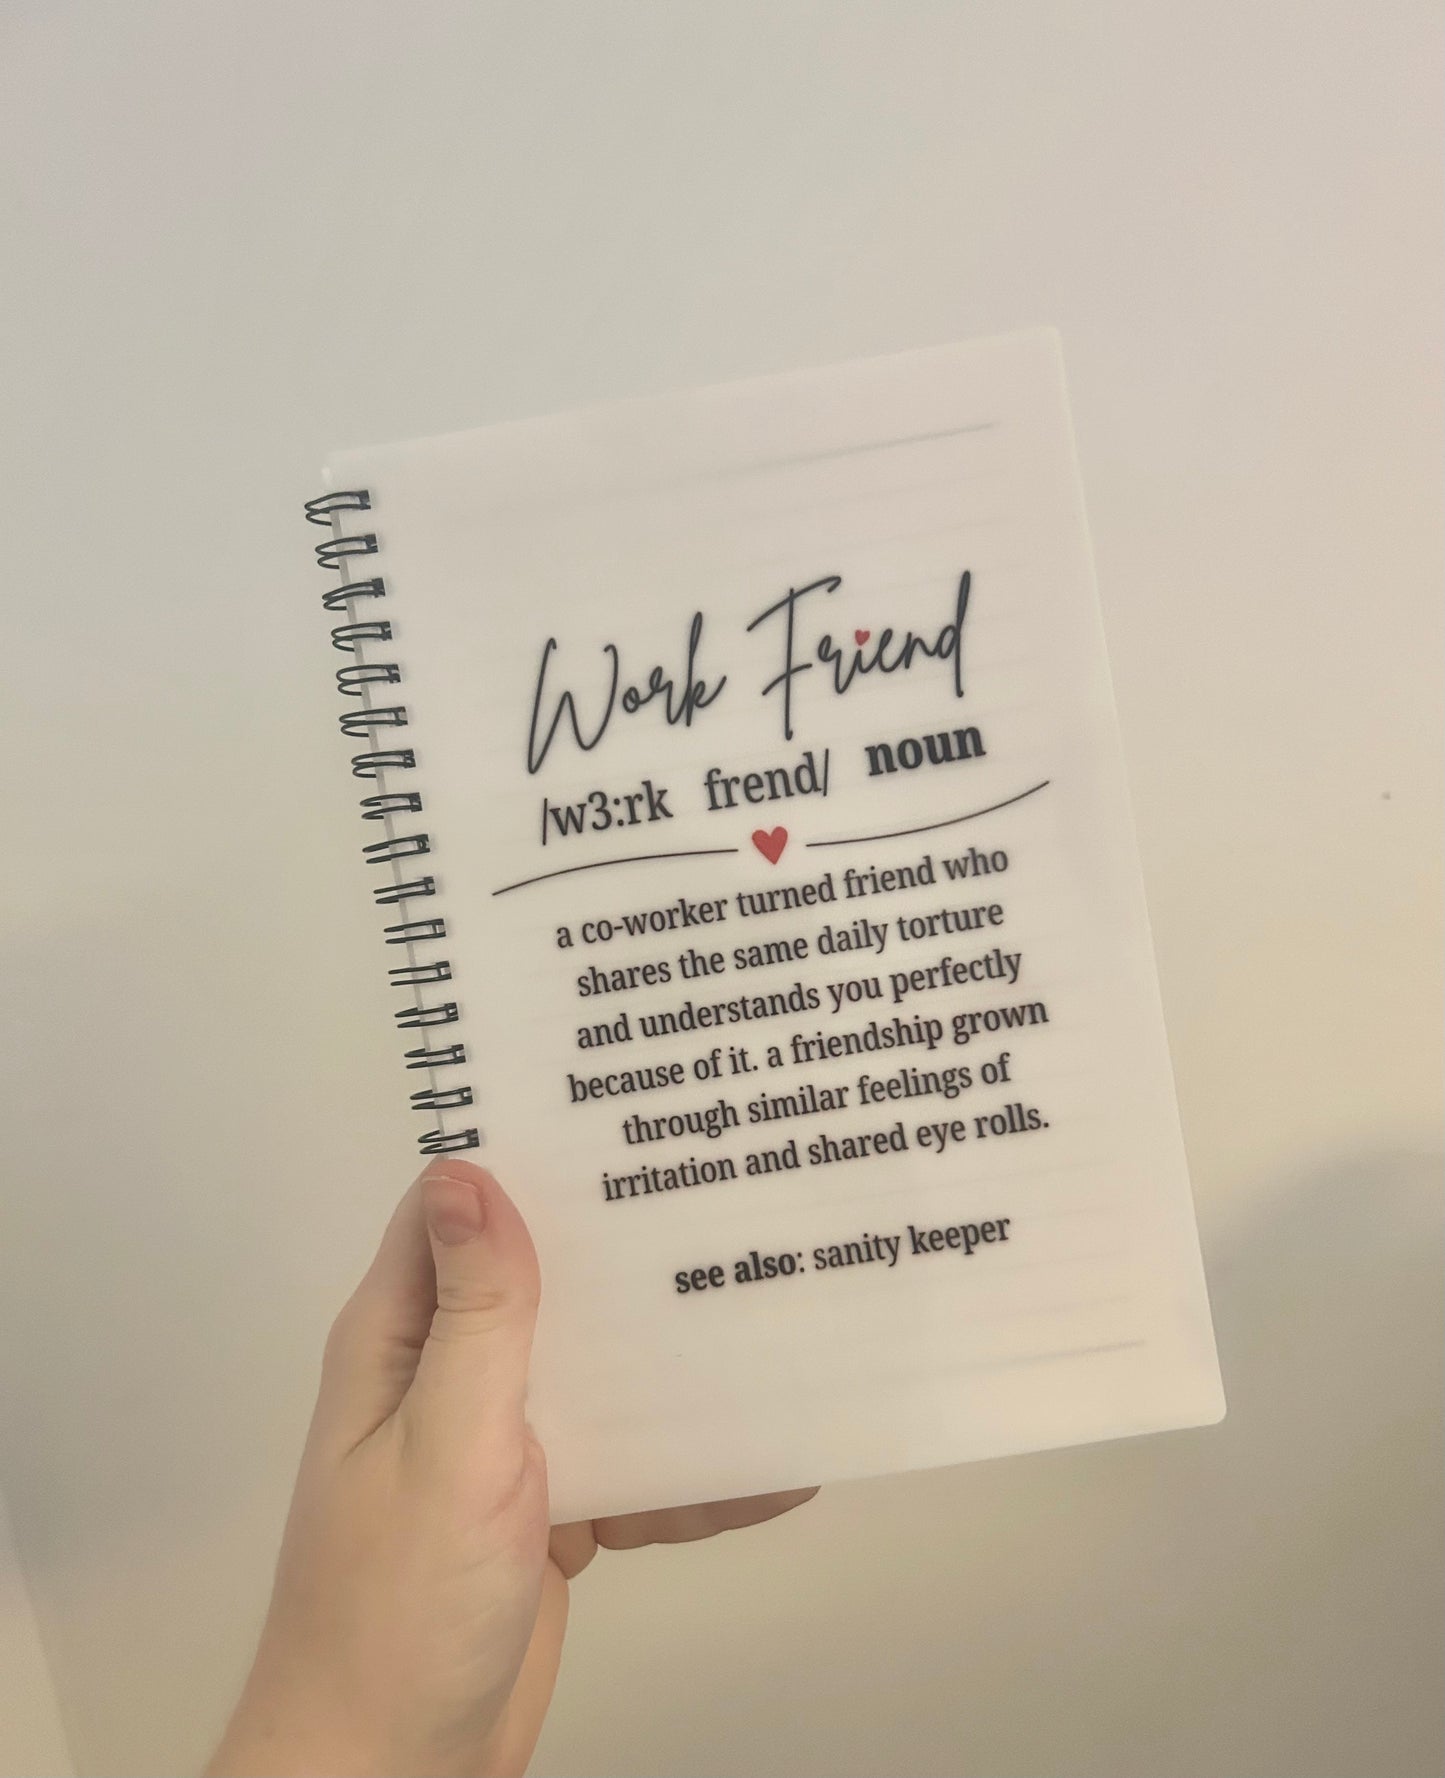 Work Friend
/w3:rk frend/ noun
a co-worker turned friend who
shares the same daily torture
and understands you perfectly
because of it. a friendship grown
through similar feelings of
irritation and shared eye rolls.
see also: sanity keeper